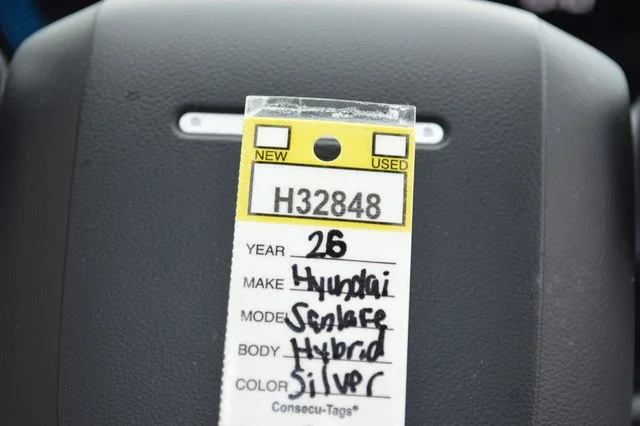 NEW USED
H32848
YEAR 26
MAKE Hyundai
MODEL Santafe
BODY Hybrid
COLOR Silver
Consecu-Tags®